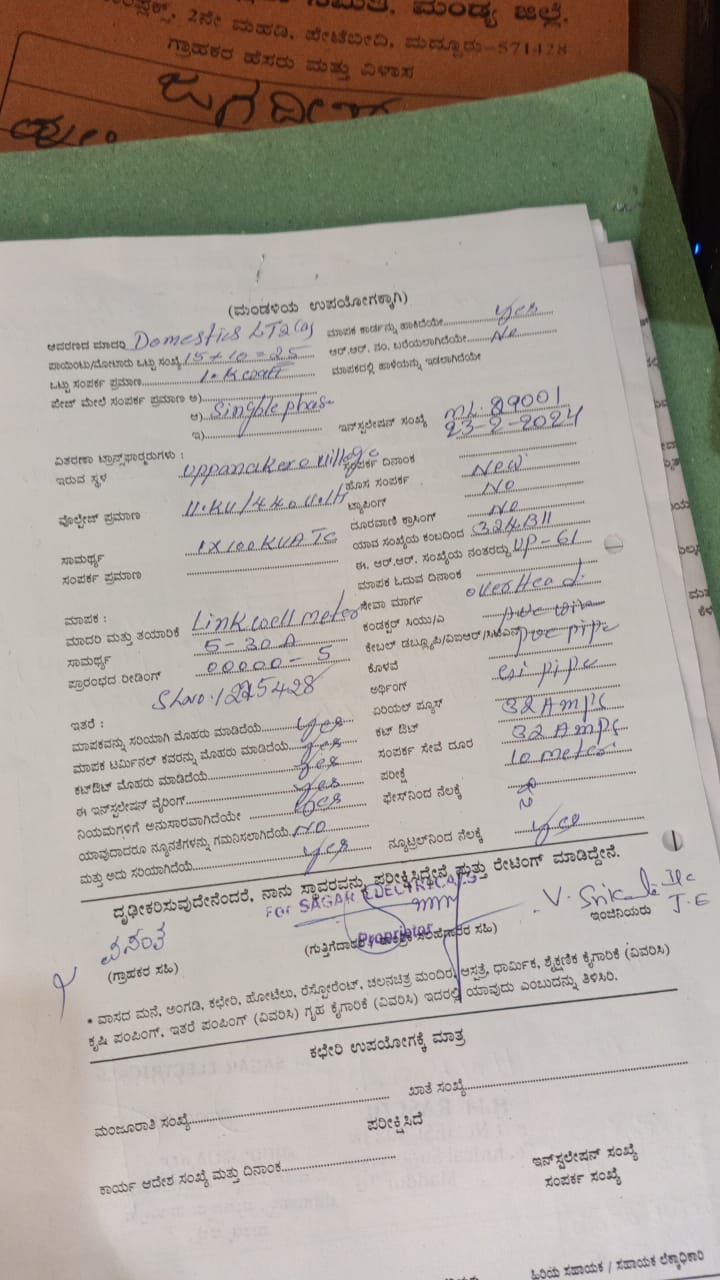 ಮಂಡ್ಯ ಜಿಲ್ಲೆ.
2ನೇ ಮಹಡಿ, ಪೇಟೆಬೀದಿ, ಮದ್ದೂರು-571428
ಗ್ರಾಹಕರ ಹೆಸರು ಮತ್ತು ವಿಳಾಸ
ಜಗದೀಶ್
(ಮಂಡಳಿಯ ಉಪಯೋಗಕ್ಕಾಗಿ)
ಆವರಣದ ಮಾದರಿ Domestics LT2(a) ಮಾಪಕ ಕಾರ್ಡನ್ನು ಹಾಕಿದೆಯೇ Yes
ಪಾಯಿಂಟು/ಮೋಟಾರು ಒಟ್ಟು ಸಂಖ್ಯೆ 15+10=25 ಆರ್.ಆರ್. ನಂ. ಬರೆಯಲಾಗಿದೆಯೇ No
ಒಟ್ಟು ಸಂಪರ್ಕ ಪ್ರಮಾಣ 1.Kwatt ಮಾಪಕದಲ್ಲಿ ಹಾಳೆಯನ್ನು ಇಡಲಾಗಿದೆಯೇ
ಪೇಜ್ ಮೇಲೆ ಸಂಪರ್ಕ ಪ್ರಮಾಣ ಅ)
ಆ) Singhle phas
ಇ) ಇನ್‌ಸ್ಟಲೇಷನ್ ಸಂಖ್ಯೆ ML:89001
ವಿತರಣಾ ಟ್ರಾನ್ಸ್‌ಫಾರ್ಮರುಗಳು : 23-2-2024
ಇರುವ ಸ್ಥಳ uppanakere village ಸಂಪರ್ಕ ದಿನಾಂಕ
ಹೊಸ ಸಂಪರ್ಕ New
ವೋಲ್ಟೇಜ್ ಪ್ರಮಾಣ 11.KV/440 Volt ಟ್ಯಾಪಿಂಗ್ No
ದೂರವಾಣಿ ಕ್ರಾಸಿಂಗ್ No
ಸಾಮರ್ಥ್ಯ 1X100KVA TC ಯಾವ ಸಂಖ್ಯೆಯ ಕಂಬದಿಂದ 324B11
ಸಂಪರ್ಕ ಪ್ರಮಾಣ ಈ. ಆರ್.ಆರ್. ಸಂಖ್ಯೆಯ ನಂತರದ್ದು UP-61
ಮಾಪಕ ಓದುವ ದಿನಾಂಕ
ಮಾಪಕ : ಸೇವಾ ಮಾರ್ಗ overHead
ಮಾದರಿ ಮತ್ತು ತಯಾರಿಕೆ Linkwell meter ಕಂಡಕ್ಟರ್ ಸಿಯು/ಎ
ಸಾಮರ್ಥ್ಯ 5-30A ಕೇಬಲ್ ಡಬ್ಲ್ಯೂಪಿ/ವಿಐಆರ್/ಸಿಟಿಎಸ್ pvc pipe
ಪ್ರಾರಂಭದ ರೀಡಿಂಗ್ 00000-5 ಕೊಳವೆ
SLno:1225428 ಅರ್ಥಿಂಗ್ GI pipe
ಇತರೆ : ಏರಿಯಲ್ ಫ್ಯೂಸ್ 32 Amps
ಮಾಪಕವನ್ನು ಸರಿಯಾಗಿ ಮೊಹರು ಮಾಡಿದೆಯೆ Yes ಕಟ್ ಔಟ್ 32 Amps
ಮಾಪಕ ಟರ್ಮಿನಲ್ ಕವರನ್ನು ಮೊಹರು ಮಾಡಿದೆಯೆ Yes ಸಂಪರ್ಕ ಸೇವೆ ದೂರ 10 meter
ಕಟ್‌ಔಟ್ ಮೊಹರು ಮಾಡಿದೆಯೆ Yes ಪರೀಕ್ಷೆ
ಈ ಇನ್‌ಸ್ಟಲೇಷನ್ ವೈರಿಂಗ್ Yes ಫೇಸ್‌ನಿಂದ ನೆಲಕ್ಕೆ
ನಿಯಮಗಳಿಗೆ ಅನುಸಾರವಾಗಿದೆಯೇ Yes
ಯಾವುದಾದರೂ ನ್ಯೂನತೆಗಳನ್ನು ಗಮನಿಸಲಾಗಿದೆಯೆ No
ಮತ್ತು ಅದು ಸರಿಯಾಗಿದೆಯೆ Yes ನ್ಯೂಟ್ರಲ್‌ನಿಂದ ನೆಲಕ್ಕೆ Yes
ದೃಢೀಕರಿಸುವುದೇನೆಂದರೆ, ನಾನು ಸ್ಥಾವರವನ್ನು ಪರೀಕ್ಷಿಸಿದ್ದೇನೆ ಮತ್ತು ರೇಟಿಂಗ್ ಮಾಡಿದ್ದೇನೆ.
For SAGAR ELECTRICALS
Proprietor
ವಸಂತ
V. Srikala
J.E
(ಗ್ರಾಹಕರ ಸಹಿ) (ಗುತ್ತಿಗೆದಾರರ ಸಹಿ) ಇಂಜಿನಿಯರು
* ವಾಸದ ಮನೆ, ಅಂಗಡಿ, ಕಛೇರಿ, ಹೋಟೆಲು, ರೆಸ್ಟೋರೆಂಟ್, ಚಲನಚಿತ್ರ ಮಂದಿರ, ಆಸ್ಪತ್ರೆ, ಧಾರ್ಮಿಕ, ಶೈಕ್ಷಣಿಕ ಕೈಗಾರಿಕೆ (ವಿವರಿಸಿ)
ಕೃಷಿ ಪಂಪಿಂಗ್, ಇತರೆ ಪಂಪಿಂಗ್ (ವಿವರಿಸಿ) ಗೃಹ ಕೈಗಾರಿಕೆ (ವಿವರಿಸಿ) ಇದರಲ್ಲಿ ಯಾವುದು ಎಂಬುದನ್ನು ತಿಳಿಸಿರಿ.
ಕಛೇರಿ ಉಪಯೋಗಕ್ಕೆ ಮಾತ್ರ
ಮಂಜೂರಾತಿ ಸಂಖ್ಯೆ ಖಾತೆ ಸಂಖ್ಯೆ
ಪರೀಕ್ಷಿಸಿದೆ
ಕಾರ್ಯ ಆದೇಶ ಸಂಖ್ಯೆ ಮತ್ತು ದಿನಾಂಕ ಇನ್‌ಸ್ಟಲೇಷನ್ ಸಂಖ್ಯೆ
ಸಂಪರ್ಕ ಸಂಖ್ಯೆ
ಹಿರಿಯ ಸಹಾಯಕ / ಸಹಾಯಕ ಲೆಕ್ಕಾಧಿಕಾರಿ